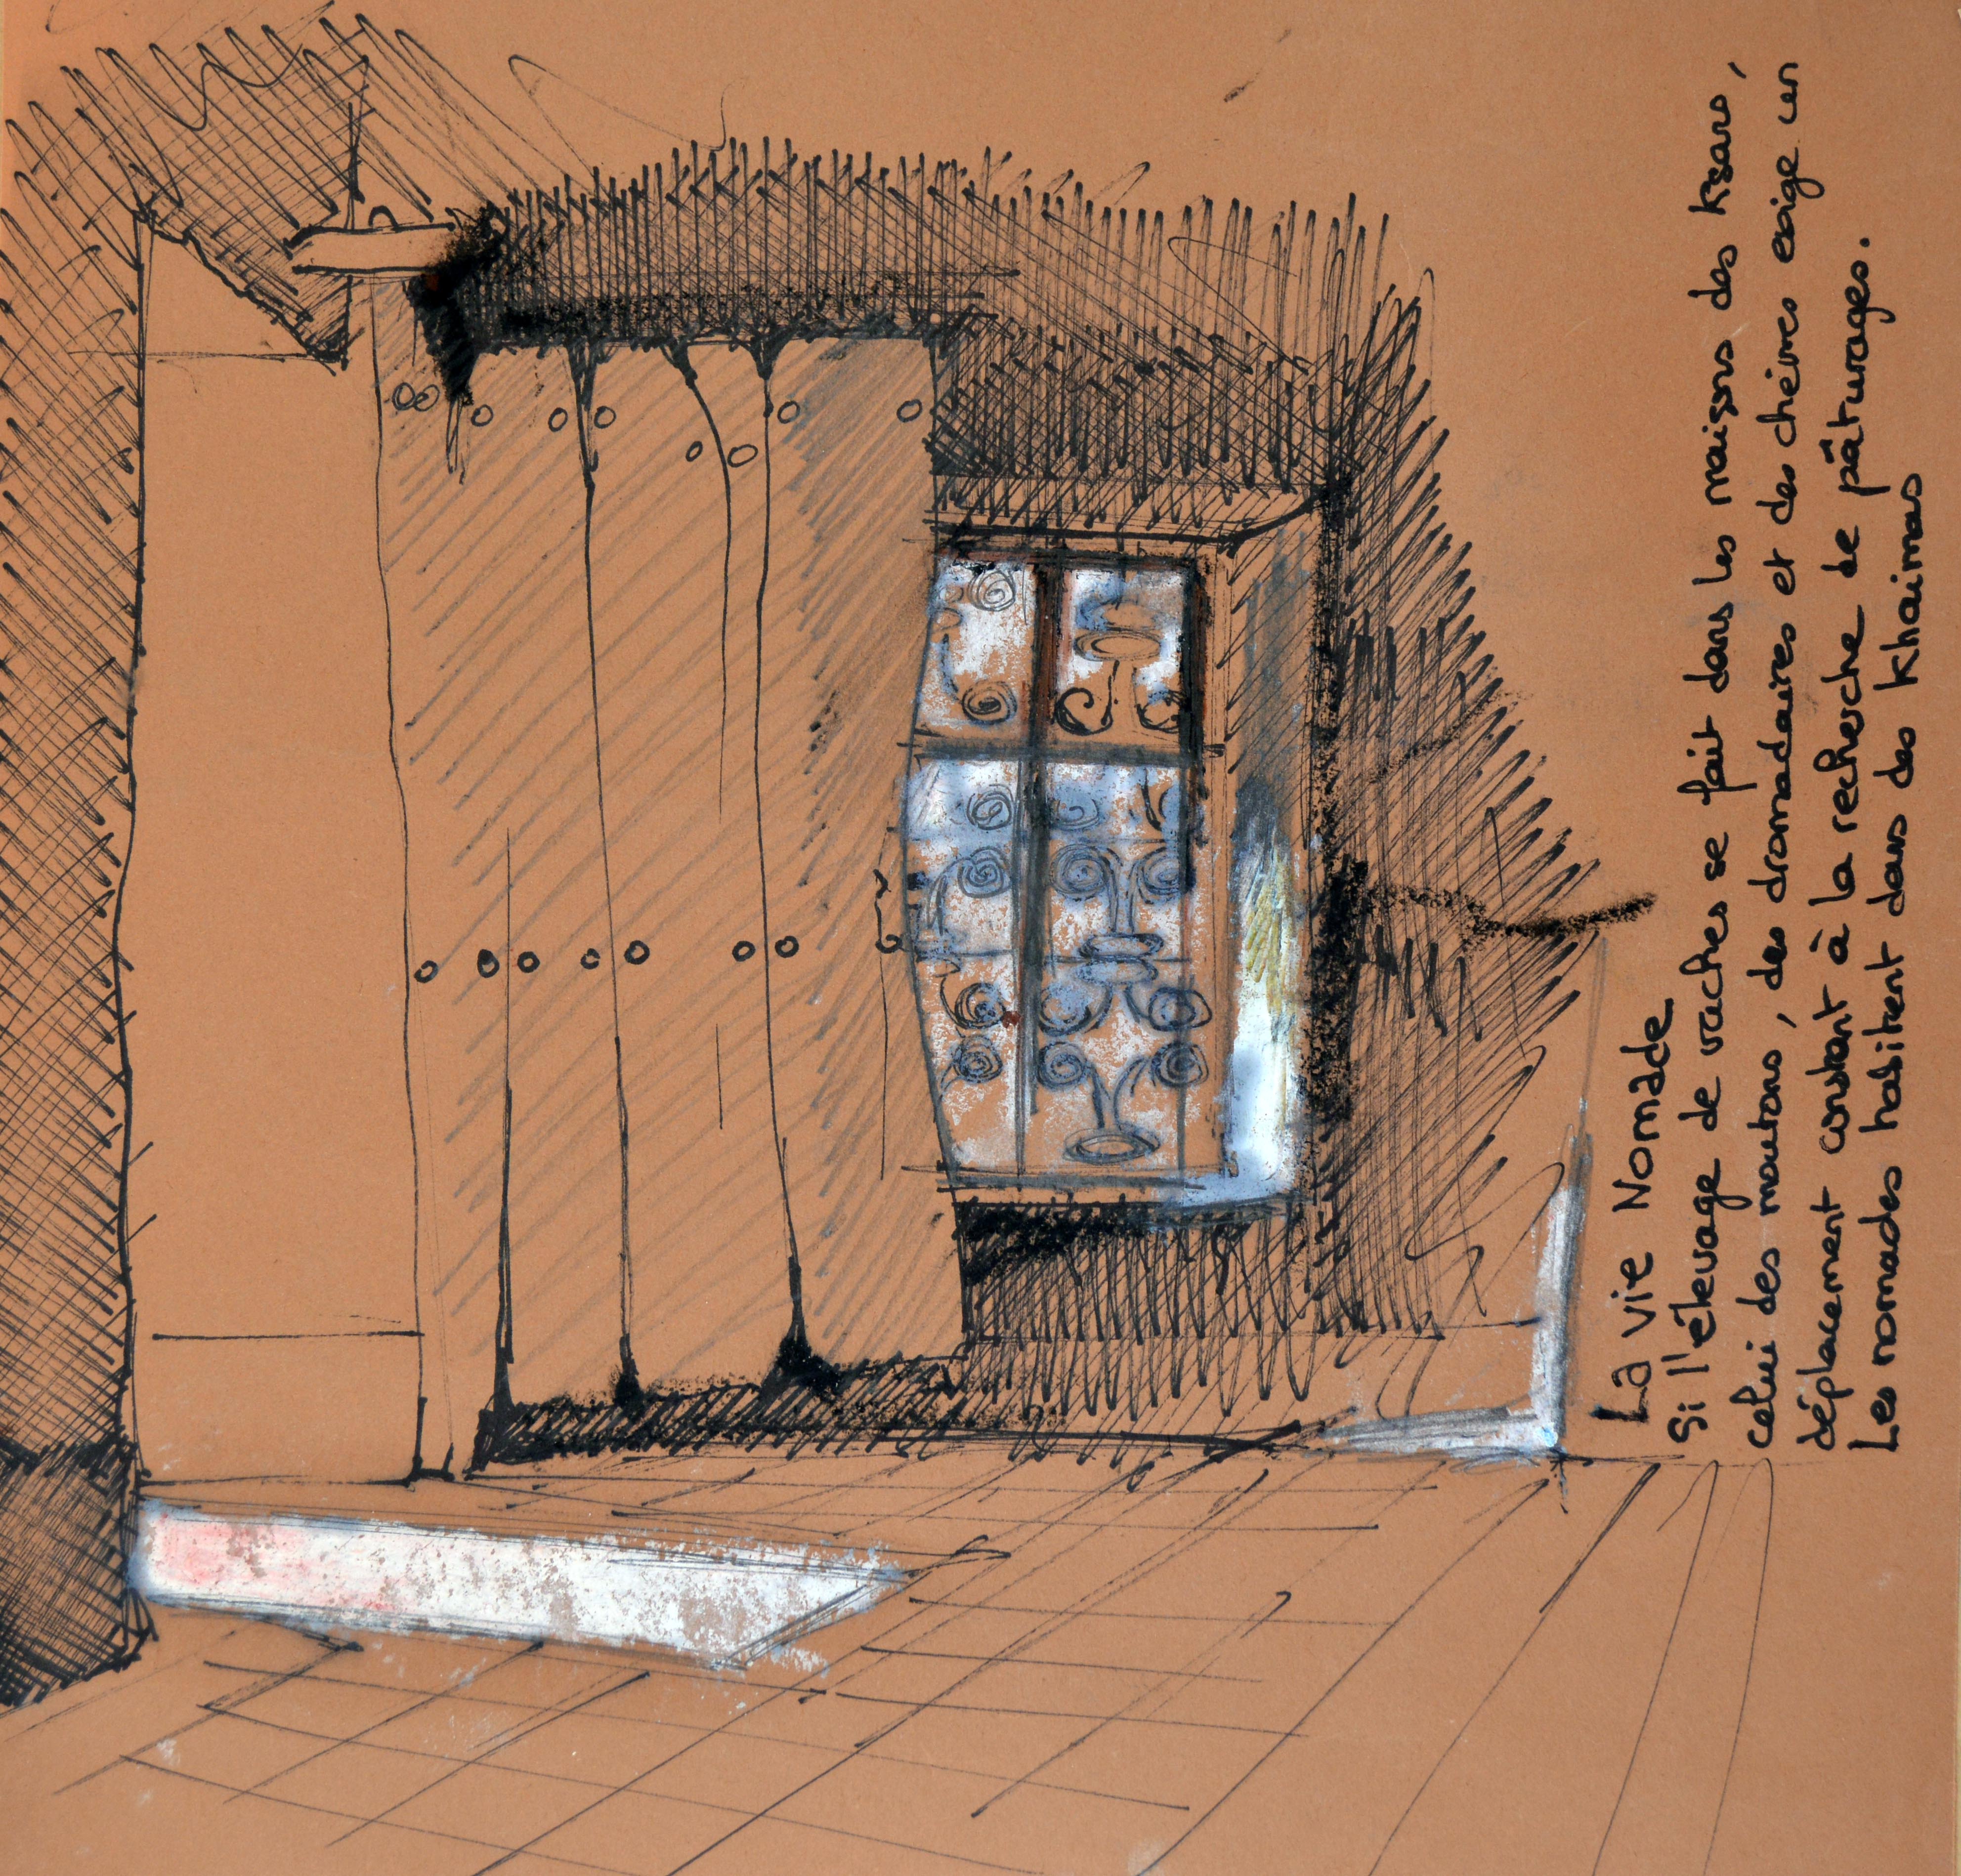 La vie Nomade
Si l'élevage de vaches se fait dans les maisons des Ksars,
celui des moutons, des dromadaires et des chèvres exige un
déplacement constant à la recherche de pâturages.
Les nomades habitent dans des Khaimas